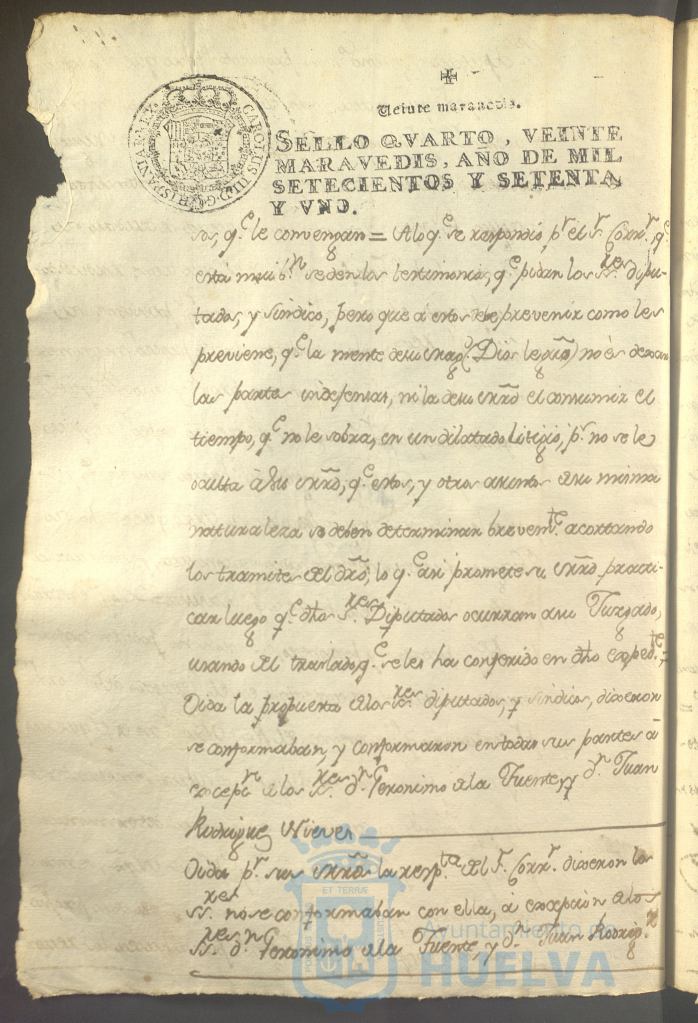 Veinte maravedis.
CAROLUS III D. G. HISPANIAR. REX
SELLO QVARTO, VEINTE
MARAVEDIS, AÑO DE MIL
SETECIENTOS Y SETENTA
Y VNO.
q.e le convengan = A lo q.e se respondió p.r el S.r Corr.r, q.e
está mui b.n se den los testimonios, q.e pidan los SS.res Dipu-
tados, y Sindico, pero que á estos debe prevenir como les
previene, q.e la mente de su (Dios le ) no és dexar
las partes indefensas, ni la de su mrd el consumir el
tiempo, q.e no le sobra, en un dilatado Litigio, p.r no se le
oculta á su mrd, q.e estos, y otros asuntos de su misma
naturaleza se deben determinar brevem.te acortando
los tramites del dró, lo q.e asi promete su mrd practi-
car luego q.e dhos S.res Diputados ocurran a su Juzgado,
usando del traslado, q.e se les ha conferido en dho exped.te =
Oida la propuesta de los SS.res diputados, y Sindico, dixeron
se conformaban, y conformaron en todas sus partes á
excepc.n de los SS.res d.n Geronimo de la Fuente, y d.n Juan
Rodriguez Nieves
Oida p.r sus mrds la resp.ta del S.r Corr.r dixeron los
SS.res no se conformaban con ella, á excepcion de los
SS.res d.n Geronimo de la Fuente, y d.n Juan Rodrig.z
Ayuntamiento de
HUELVA